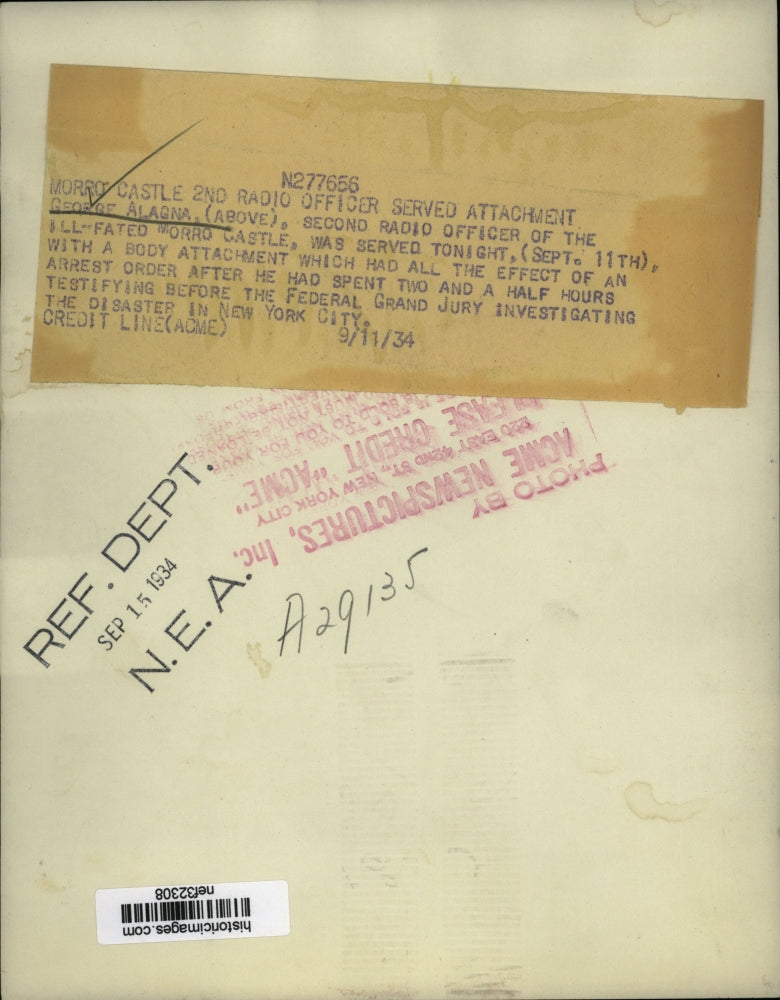 N277656
MORRO CASTLE 2ND RADIO OFFICER SERVED ATTACHMENT
GEORGE ALAGNA, (ABOVE), SECOND RADIO OFFICER OF THE
ILL-FATED MORRO CASTLE, WAS SERVED TONIGHT, (SEPT. 11TH),
WITH A BODY ATTACHMENT WHICH HAD ALL THE EFFECT OF AN
ARREST ORDER AFTER HE HAD SPENT TWO AND A HALF HOURS
TESTIFYING BEFORE THE FEDERAL GRAND JURY INVESTIGATING
THE DISASTER IN NEW YORK CITY.
CREDIT LINE(ACME) 9/11/34
PHOTO BY
ACME NEWSPICTURES, Inc.
220 EAST 42ND ST. NEW YORK CITY
PLEASE CREDIT "ACME"
REF. DEPT.
SEP 15 1934
N. E. A.
A29135
historicimages.com
nef32308